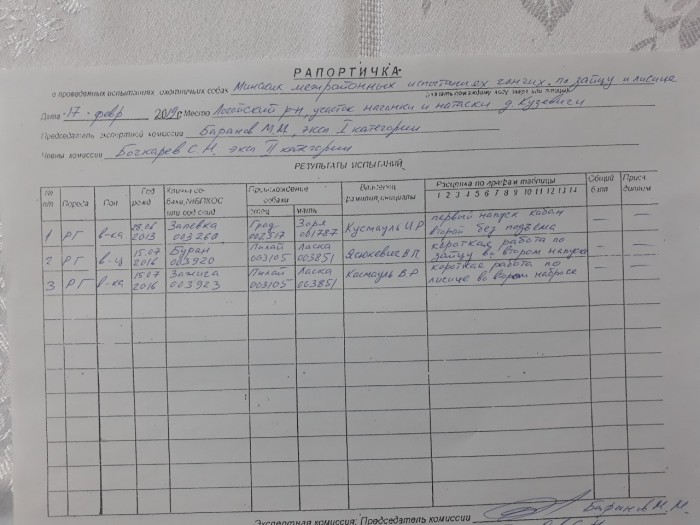 РАПОРТИЧКА
о проведенных испытаниях охотничьих собак Минских межрайонных испытаниях гончих по зайцу и лисице
Дата 17 февр 2019г Место Логойский р-н, участок нагонки и натаски д Кузевичи
Председатель экспертной комиссии Баранов М.М. эксп I категории
Члены комиссии Бочкарев С.Н. эксп II категории
РЕЗУЛЬТАТЫ ИСПЫТАНИЙ
№ пп Порода Пол Год рожд Кличка со- Происхождение Владелец Расценка по графам таблицы Общий Присв.
баки, №ВПКОС собаки фамилия, инициалы 1 2 3 4 5 6 7 8 9 10 11 12 13 14 балл диплом
или род свид отец мать
28.06 Запевка Град Заря первый напуск кабан
1 РГ в-ка 2013 003260 002517 001787 Кусмауль И Р второй без подъема — —
15.07 Буран Пилай Ласка короткая работа по
2 РГ в-ц 2016 003920 003105 003851 В П зайцу во втором напуске — —
15.07 Зажига Пилай Ласка короткая работа по
3 РГ в-ка 2016 003923 003105 003851 В Р лисице во втором — —
Экспертная комиссия: Председатель комиссии Баранов М.М.